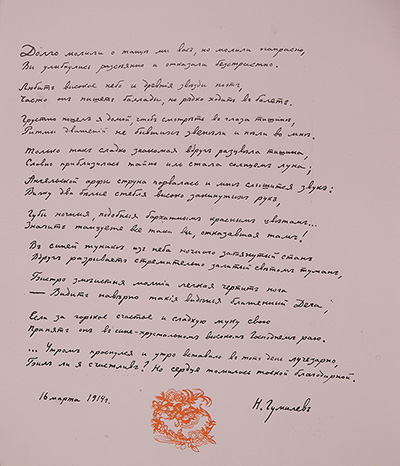 Долго молили о танцѣ мы васъ, но молили напрасно,
Вы улыбнулись разсѣянно и отказали безстрастно.
Любитъ высокое небо и древнія звѣзды поэтъ,
Часто онъ пишетъ баллады, но рѣдко ходитъ въ балетъ.
Грустно пошелъ я домой, чтобъ смотрѣть въ глаза тишинѣ,
Ритмы движеній не бывшихъ звенѣли и пѣли во мнѣ.
Только такъ сладко знакомая вдругъ расцвѣла тишина,
Словно приблизилась тайна иль стала солнцемъ луна;
Ангельской арфы струна порвалась и мнѣ слышится звукъ:
Вижу два бѣлые стебля высоко закинутыхъ рукъ,
Губы ночныя, подобныя бархатнымъ краснымъ цвѣтамъ...
Значитъ танцуете все таки вы, отказавшая тамъ!
Въ синей туникѣ изъ неба ночного затянутый станъ
Вдругъ разрываетъ стремительно залитый свѣтомъ туманъ,
Быстро змѣистыя молніи легкая чертитъ нога
— Видитъ навѣрно такія видѣнья блаженный Дега,
Если за горькое счастье и сладкую муку свою
Принятъ онъ въ сине-хрустальномъ высокомъ Господнемъ раю.
... Утромъ проснулся и утро вставало въ тотъ день лучезарно,
Былъ ли я счастливъ? Но сердце томилось тоской благодарной.
16 марта 1914г.
Н. Гумилевъ